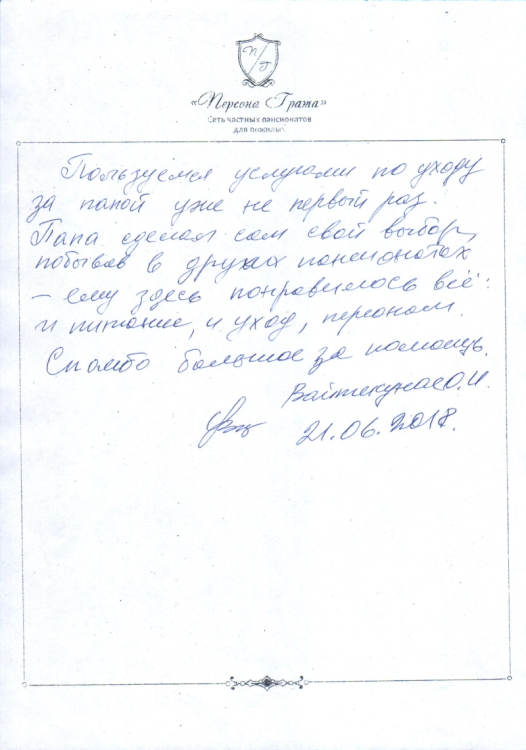 П/Г
«Персона Гранта»
Сеть частных пансионатов
для пожилых
Пользуемся услугами по уходу
за папой уже не первый раз.
Папа сделал сам свой выбор,
побывав в других пансионатах
– ему здесь понравилось всё:
и питание, и уход, персонал.
Спасибо большое за помощь.
О.И.
21.06.2018.